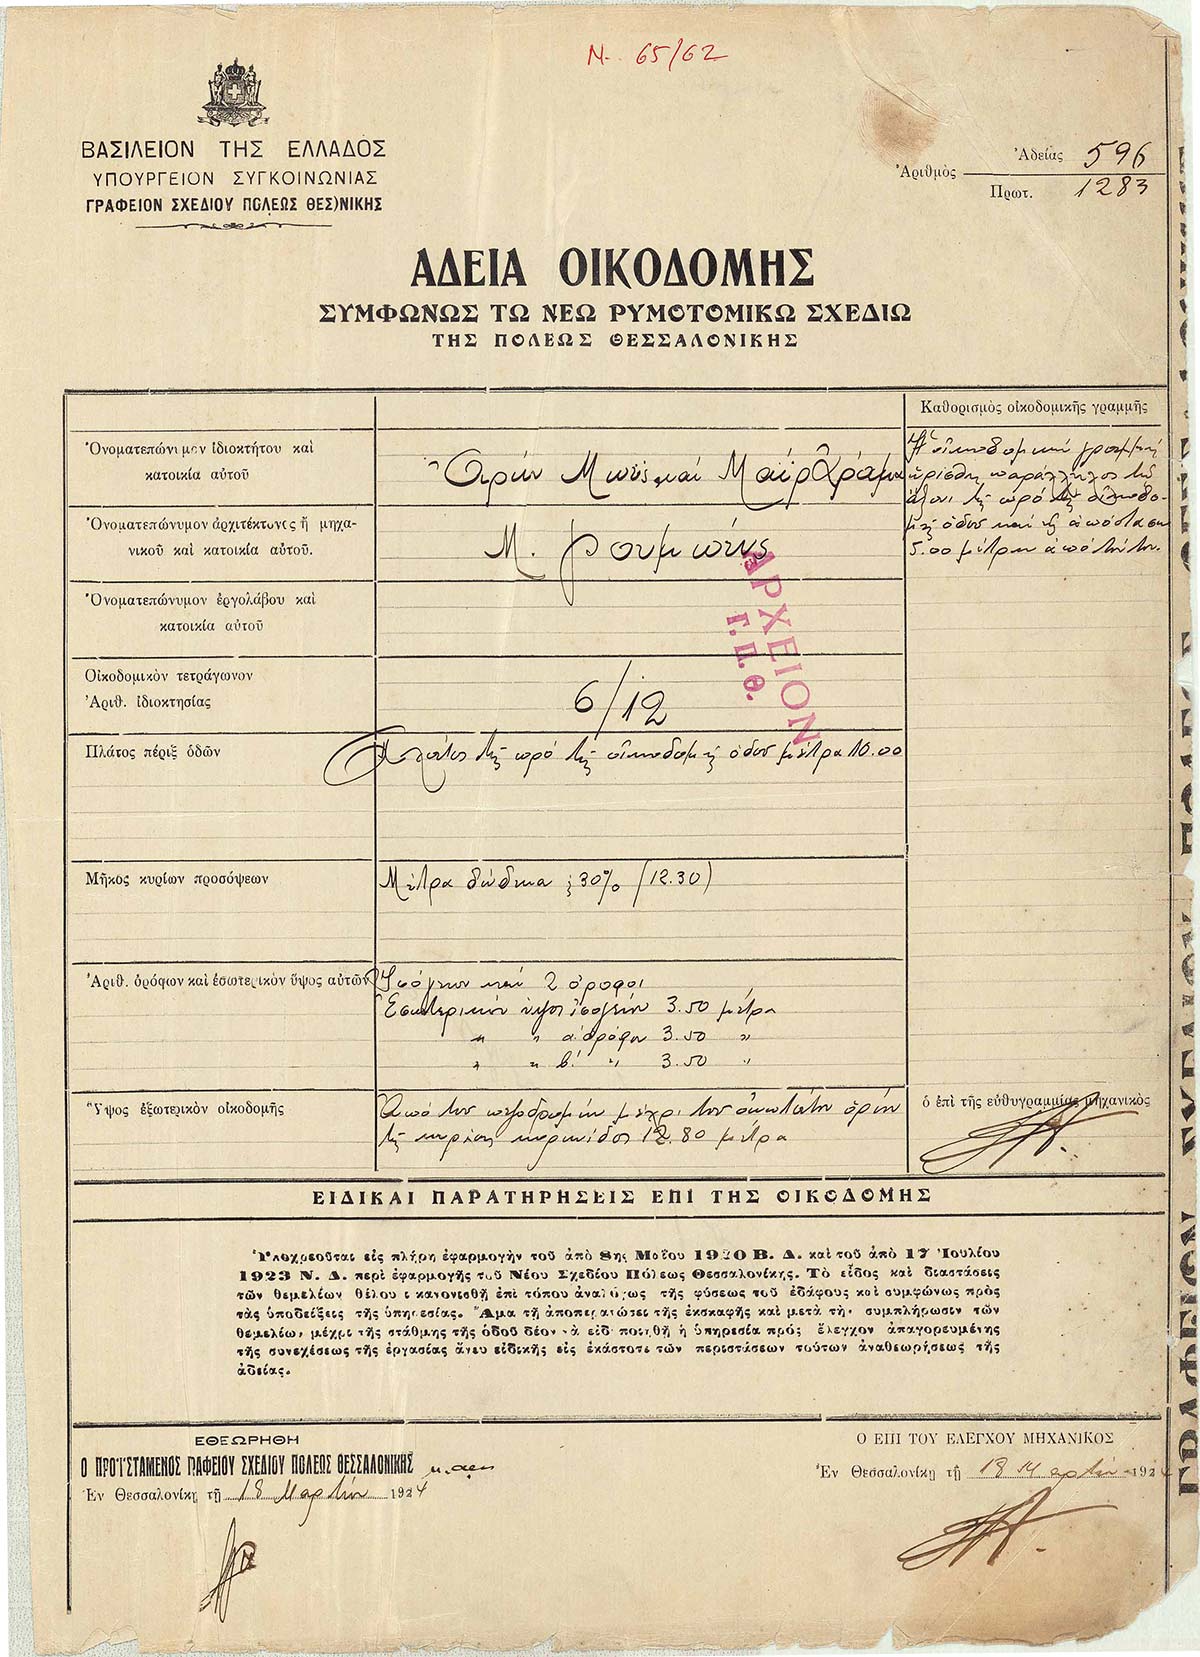 Ν. 65/62
ΒΑΣΙΛΕΙΟΝ ΤΗΣ ΕΛΛΑΔΟΣ
ΥΠΟΥΡΓΕΙΟΝ ΣΥΓΚΟΙΝΩΝΙΑΣ
ΓΡΑΦΕΙΟΝ ΣΧΕΔΙΟΥ ΠΟΛΕΩΣ ΘΕΣ)ΝΙΚΗΣ
Ἀριθμὸς Ἀδείας 596
Πρωτ. 1283
ΑΔΕΙΑ ΟΙΚΟΔΟΜΗΣ
ΣΥΜΦΩΝΩΣ ΤΩ ΝΕΩ ΡΥΜΟΤΟΜΙΚΩ ΣΧΕΔΙΩ
ΤΗΣ ΠΟΛΕΩΣ ΘΕΣΣΑΛΟΝΙΚΗΣ
Καθορισμὸς οἰκοδομικῆς γραμμῆς
Ὀνοματεπώνυμον ἰδιοκτήτου καὶ
κατοικία αὐτοῦ
Ἡ οἰκοδομικὴ γραμμὴ
ὡρίσθη παράλληλος τῷ
ἄξονι τῆς πρὸ τῆς οἰκοδο-
μῆς ὁδοῦ καὶ εἰς ἀπόστασιν
5.00 μέτρων ἀπὸ τούτου.
Ὀνοματεπώνυμον ἀρχιτέκτονος ἤ μηχα-
νικοῦ καὶ κατοικία αὐτοῦ.
Μ. Ρουμπένς
ΑΡΧΕΙΟΝ
Γ.Π.Θ.
Ὀνοματεπώνυμον ἐργολάβου καὶ
κατοικία αὐτοῦ
Οἰκοδομικὸν τετράγωνον
Ἀριθ. ἰδιοκτησίας
6/12
Πλάτος πέριξ ὁδῶν
πλάτος τῆς πρὸ τῆς οἰκοδομῆς ὁδοῦ μέτρα 10.00
Μῆκος κυρίων προσόψεων
Μέτρα δώδεκα 30% (12.30)
Ἀριθ. ὀρόφων καὶ ἐσωτερικὸν ὕψος αὐτῶν
Ἰσόγειον καὶ 2 ὄροφοι
Ἐσωτερικὸν ὕψος ἰσογείου 3.50 μέτρα
" " α' ὀρόφου 3.50 "
" " β' " 3.50 "
Ὕψος ἐξωτερικὸν οἰκοδομῆς
Ἀπὸ τοῦ πεζοδρομίου μέχρι τοῦ ἀνωτάτου ὁρίου
τῆς κυρίας κορωνίδος 12.80 μέτρα
ὁ ἐπὶ τῆς εὐθυγραμμίας μηχανικὸς
ΕΙΔΙΚΑΙ ΠΑΡΑΤΗΡΗΣΕΙΣ ΕΠΙ ΤΗΣ ΟΙΚΟΔΟΜΗΣ
Ὑποχρεοῦται εἰς πλήρη ἐφαρμογὴν τοῦ ἀπὸ 8ης Μαΐου 1920 Β. Δ. καὶ τοῦ ἀπὸ 17 Ἰουλίου
1923 Ν. Δ. περὶ ἐφαρμογῆς τοῦ Νέου Σχεδίου Πόλεως Θεσσαλονίκης. Τὸ εἶδος καὶ διαστάσεις
τῶν θεμελίων θέλουσι κανονισθῆ ἐπὶ τόπου ἀναλόγως τῆς φύσεως τοῦ ἐδάφους καὶ συμφώνως πρὸς
τὰς ὑποδείξεις τῆς ὑπηρεσίας. Ἅμα τῇ ἀποπερατώσει τῆς ἐκσκαφῆς καὶ μετὰ τὴν συμπλήρωσιν τῶν
θεμελίων μέχρι τῆς στάθμης τῆς ὁδοῦ δέον νὰ εἰδοποιηθῇ ἡ ὑπηρεσία πρὸς ἔλεγχον ἀπαγορευμένης
τῆς συνεχίσεως τῆς ἐργασίας ἄνευ εἰδικῆς εἰς ἑκάστοτε τῶν περιστάσεων τούτων ἀναθεωρήσεως τῆς
ἀδείας.
ΕΘΕΩΡΗΘΗ
Ο ΠΡΟΪΣΤΑΜΕΝΟΣ ΓΡΑΦΕΙΟΥ ΣΧΕΔΙΟΥ ΠΟΛΕΩΣ ΘΕΣΣΑΛΟΝΙΚΗΣ
Ἐν Θεσσαλονίκῃ τῇ 18 Μαρτίου 1924
Ο ΕΠΙ ΤΟΥ ΕΛΕΓΧΟΥ ΜΗΧΑΝΙΚΟΣ
Ἐν Θεσσαλονίκῃ τῇ 18 Μαρτίου 1924